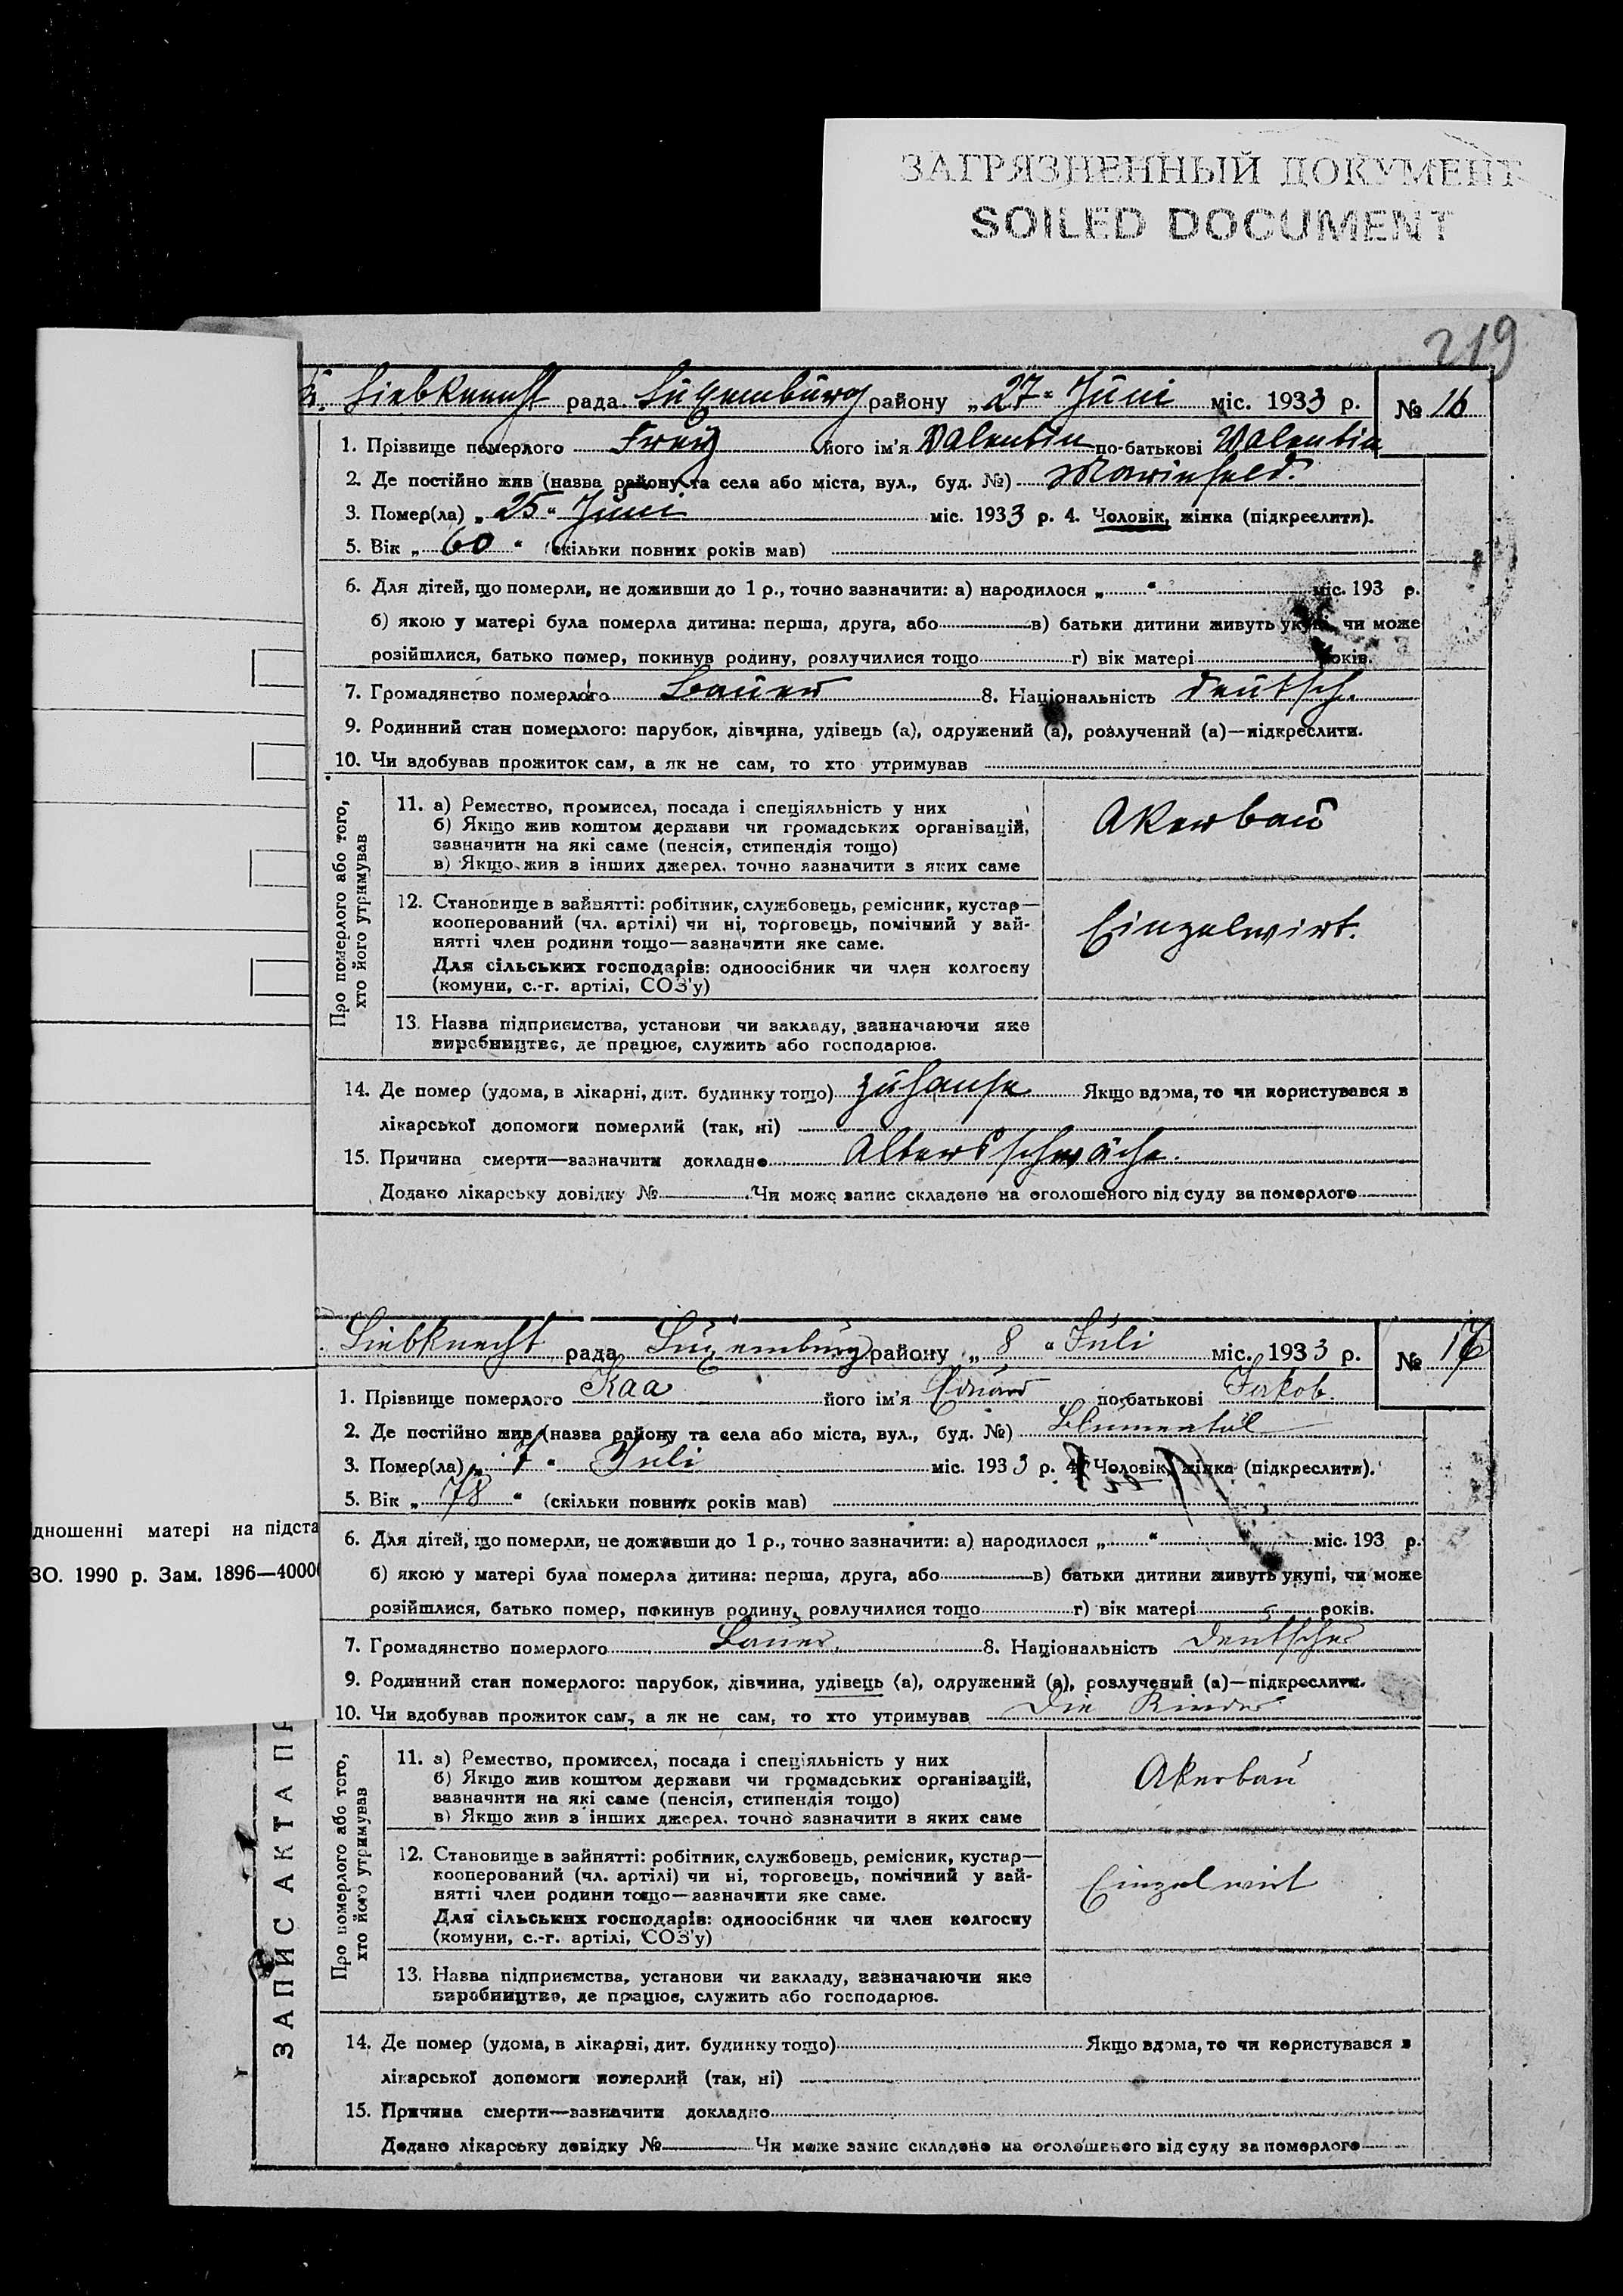 ЗАГРЯЗНЕННЫЙ ДОКУМЕНТ
SOILED DOCUMENT
219
Liebknecht рада Luxemburg району „27“ Juni міс. 1933 р. № 16
1. Прізвище померлого Frey його ім'я Valentin по-батькові Valentin
2. Де постійно жив (назва району та села або міста, вул., буд. №) Marinfeld.
3. Помер(ла) „25“ Juni міс. 1933 р. 4. Чоловік, жінка (підкреслити).
5. Вік „60“ (скільки повних років мав)
6. Для дітей, що померли, не доживши до 1 р., точно зазначити: а) народилося „ “ міс. 193 р.
б) якою у матері була померла дитина: перша, друга, або в) батьки дитини живуть укупі, чи може
розійшлися, батько помер, покинув родину, розлучилися тощо г) вік матері років.
7. Громадянство померлого Bauer 8. Національність Deutsch.
9. Родинний стан померлого: парубок, дівчина, удівець (а), одружений (а), розлучений (а)—підкреслити.
10. Чи здобував прожиток сам, а як не сам, то хто утримував
Про померлого або того,
хто його утримував
11. а) Ремество, промисел, посада і спеціяльність у них
б) Якщо жив коштом держави чи громадських організацій,
зазначити на які саме (пенсія, стипендія тощо)
в) Якщо жив з інших джерел, точно зазначити з яких саме
Akerbau
12. Становище в зайнятті: робітник, службовець, ремісник, кустар—
кооперований (чл. артілі) чи ні, торговець, помічний у зай-
нятті член родини тощо—зазначити яке саме.
Для сільських господарів: одноосібник чи член колгоспу
(комуни, с.-г. артілі, СОЗ'у)
Einzelwirt.
13. Назва підприємства, установи чи закладу, зазначаючи яке
виробництво, де працює, служить або господарює.
14. Де помер (удома, в лікарні, дит. будинку тощо) zuhause Якщо вдома, то чи користувався з
лікарської допомоги померлий (так, ні)
15. Причина смерти—зазначити докладно Altersschwäche.
Додано лікарську довідку № Чи може запис складено на оголошеного від суду за померлого
Liebknecht рада Luxemburg району „8“ Juli міс. 1933 р. № 17
1. Прізвище померлого Kaa його ім'я Eduard по-батькові Jakob.
2. Де постійно жив (назва району та села або міста, вул., буд. №) Blumental
3. Помер(ла) „7“ Juli міс. 1933 р. 4. Чоловік, жінка (підкреслити).
5. Вік „78“ (скільки повних років мав)
дношенні матері на підста
6. Для дітей, що померли, не доживши до 1 р., точно зазначити: а) народилося „ “ міс. 193 р.
ЗО. 1990 р. Зам. 1896—4000
б) якою у матері була померла дитина: перша, друга, або в) батьки дитини живуть укупі, чи може
розійшлися, батько помер, покинув родину, розлучилися тощо г) вік матері років.
7. Громадянство померлого Bauer. 8. Національність Deutscher
9. Родинний стан померлого: парубок, дівчина, удівець (а), одружений (а), розлучений (а)—підкреслити.
10. Чи здобував прожиток сам, а як не сам, то хто утримував Die Kinder
ЗАПИС АКТА ПР
Про померлого або того,
хто його утримував
11. а) Ремество, промисел, посада і спеціяльність у них
б) Якщо жив коштом держави чи громадських організацій,
зазначити на які саме (пенсія, стипендія тощо)
в) Якщо жив з інших джерел, точно зазначити з яких саме
Akerbau
12. Становище в зайнятті: робітник, службовець, ремісник, кустар—
кооперований (чл. артілі) чи ні, торговець, помічний у зай-
нятті член родини тощо—зазначити яке саме.
Для сільських господарів: одноосібник чи член колгоспу
(комуни, с.-г. артілі, СОЗ'у)
Einzelwirt
13. Назва підприємства, установи чи закладу, зазначаючи яке
виробництво, де працює, служить або господарює.
14. Де помер (удома, в лікарні, дит. будинку тощо) Якщо вдома, то чи користувався з
лікарської допомоги померлий (так, ні)
15. Причина смерти—зазначити докладно
Додано лікарську довідку № Чи може запис складено на оголошеного від суду за померлого